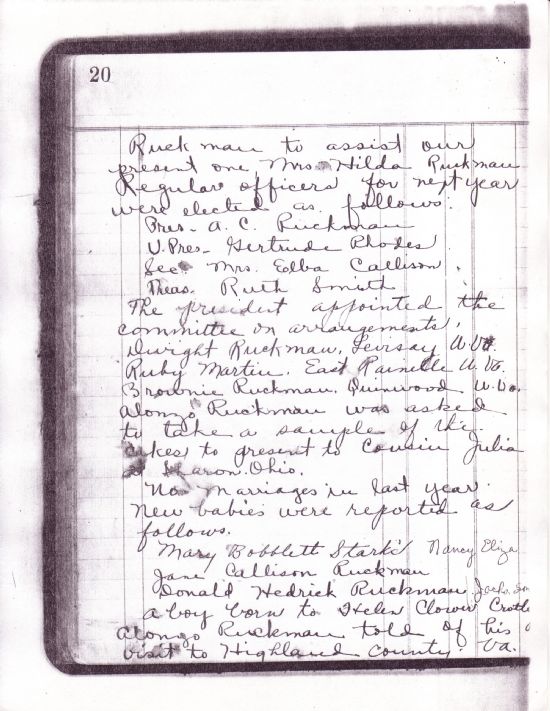 20
Ruckman to assist our
present one Mrs Hilda Ruckman
Regular officers for next year
were elected as follows:
Pres- A. C. Ruckman
V. Pres- Gertrude Rhodes
Sec. Mrs. Edba Callison.
Treas. Ruth Smith
The president appointed the
committee on arrangements,
Dwight Ruckman, Levisay W. Va.
Ruby Martin. East Rainelle W. Va.
Brownie Ruckman. Quinwood W. Va.
Alonzo Ruckman was asked
to take a sample of the
cakes to present to Cousin Julia
Sharon. Ohio.
No marriages in last year
New babies were reported as
follows.
Mary Bobblett Stark's Nancy Eliza
Jane Callison Ruckman
Donald Hedrick Ruckman. Jacks. Son
a boy born to Helen Clower
Alonzo Ruckman told of his
visit to Highland County. Va.